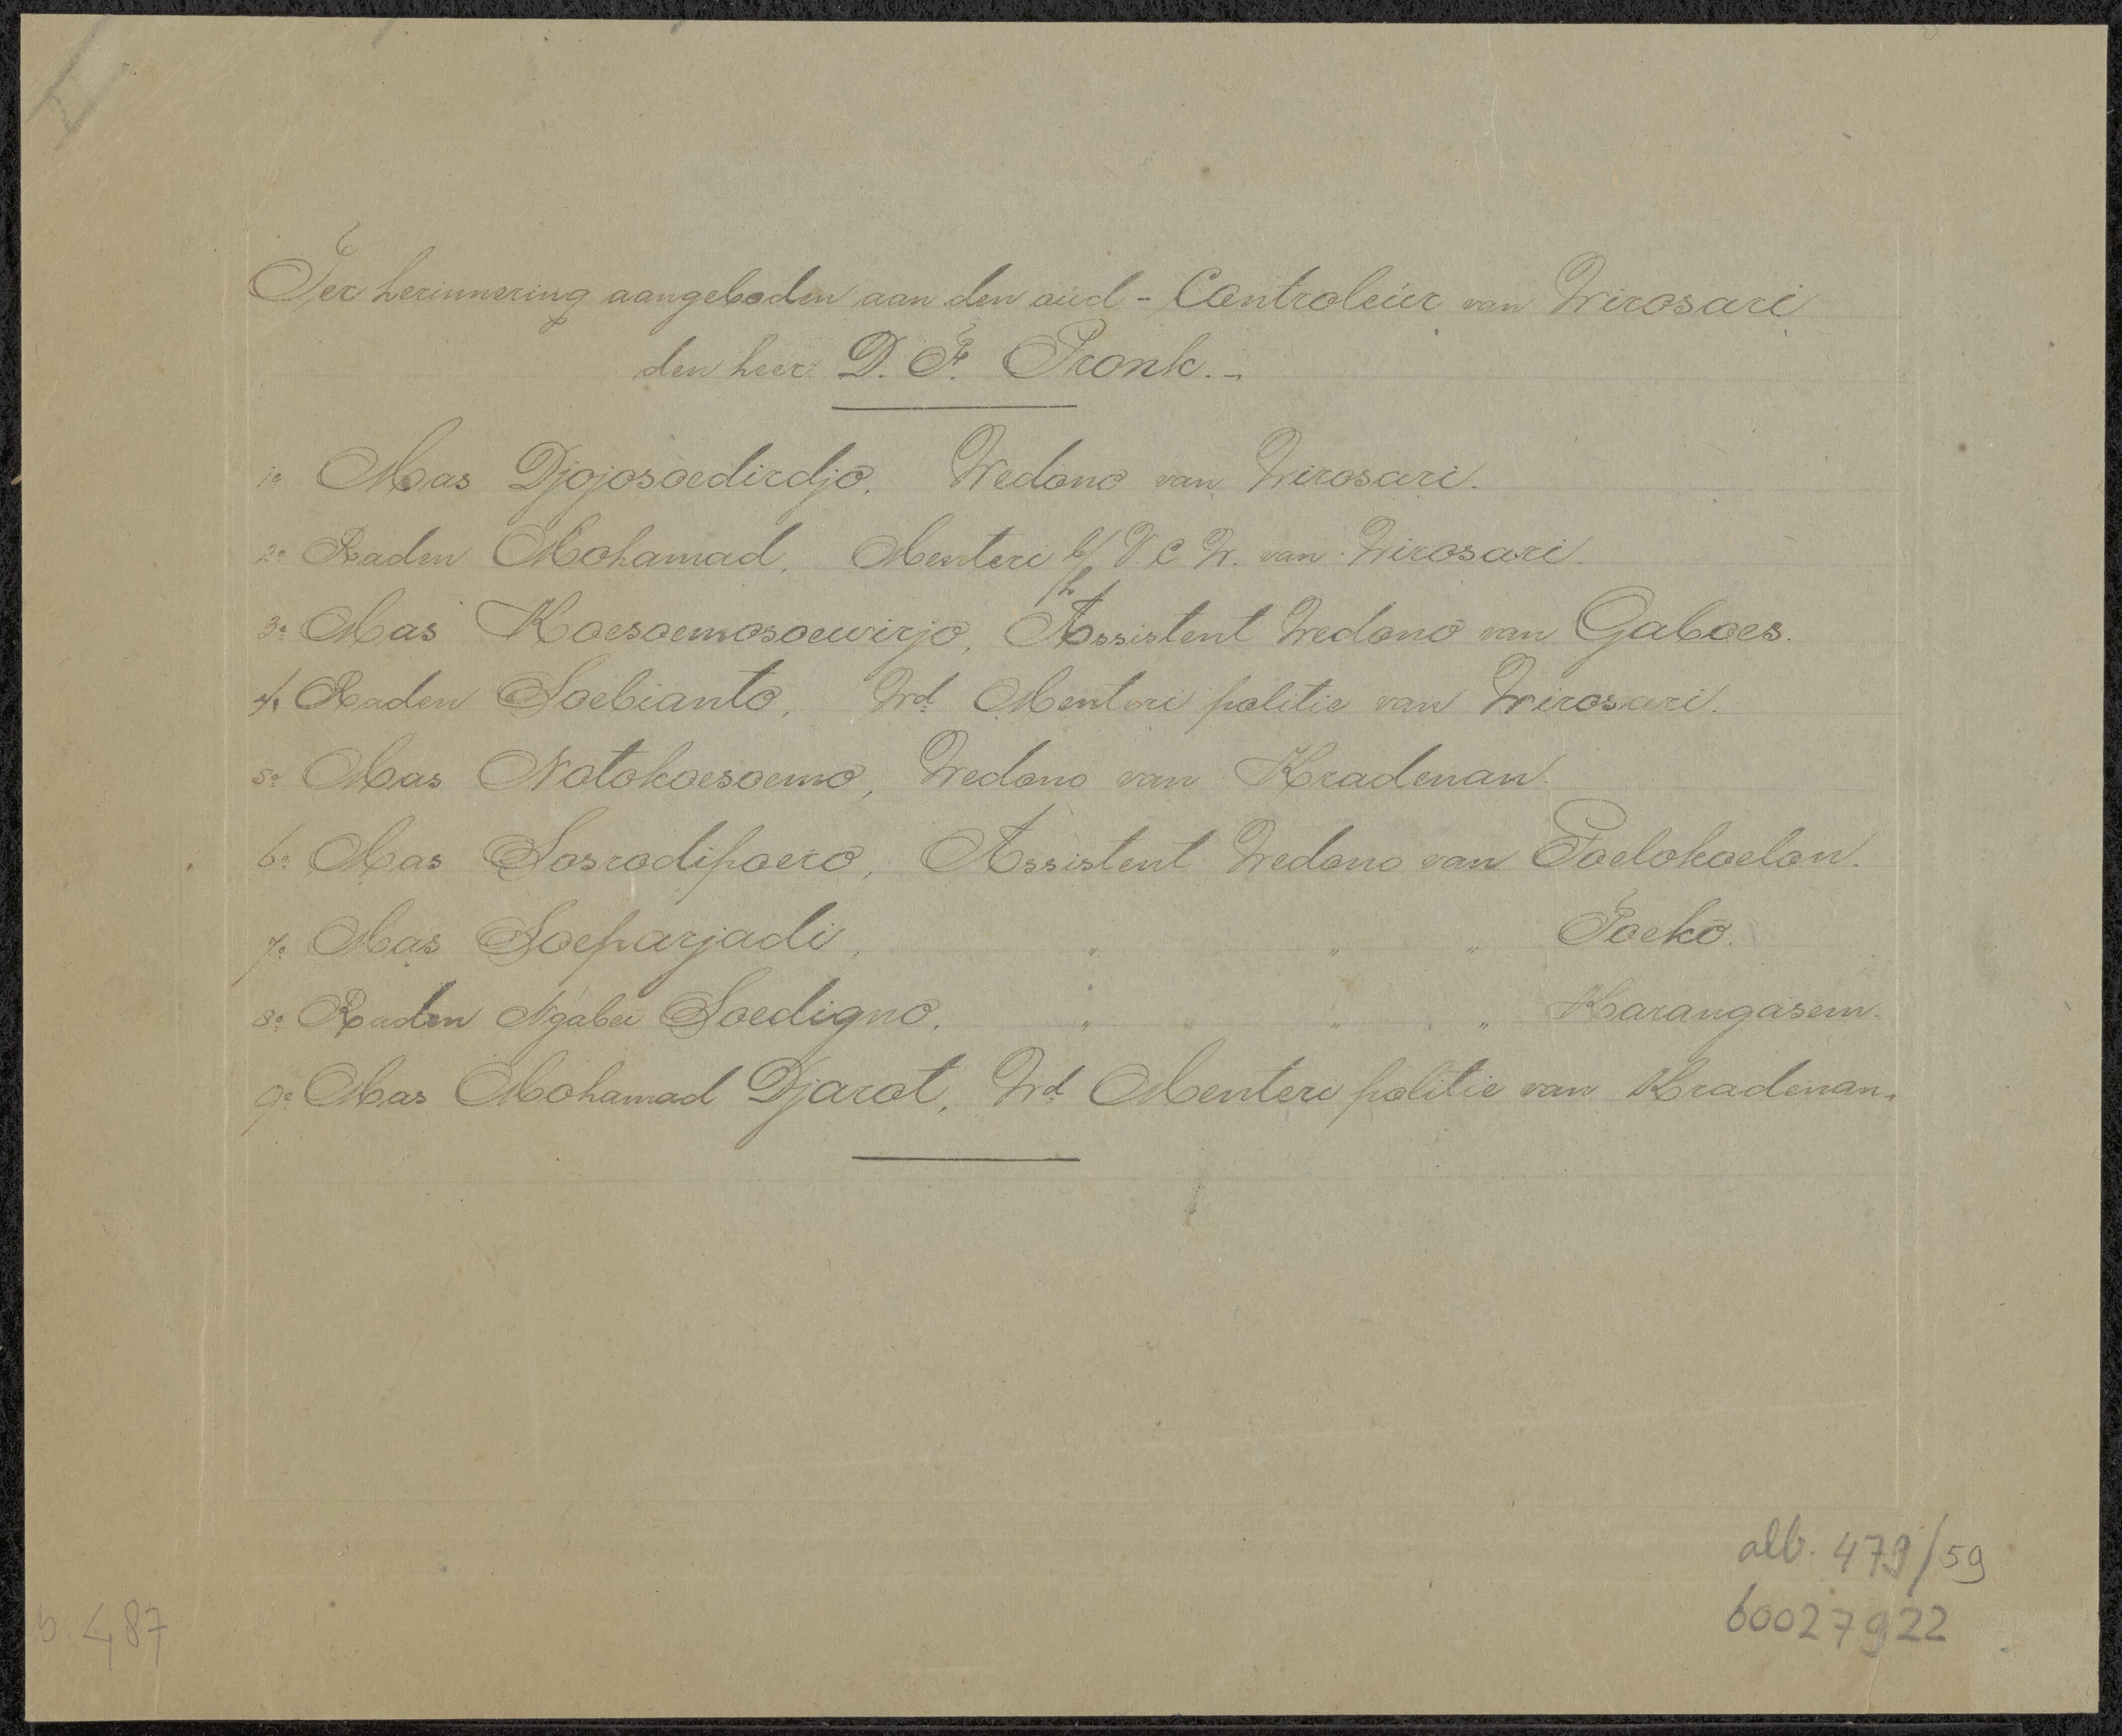 Ter herinnering aangeboden aan den oud - Controleur van Wirosari
den heer D. F. Pronk. -
1e Mas Djojosoedirdjo, Wedono van Wirosari.
2e Raden Mohamad, Menteri b/d V. C W. van Wirosari.
3e Mas Koesoemosoewirjo, Assistent Wedono van Gaboes.
4e Raden Soebianto, Wd Menteri politie van Wirosari.
5e Mas Notokoesoemo, Wedono van Kradenan.
6e Mas Sosrodipoero, Assistent Wedono van Poelokoelon.
7e Mas Soeparjadi, " " " Toeko.
8e Raden Ngabei Soedigno, " " " Karangasem.
9e Mas Mohamad Djarot, Wd Menteri politie van Kradenan.
alb. 479/59
60027922
487